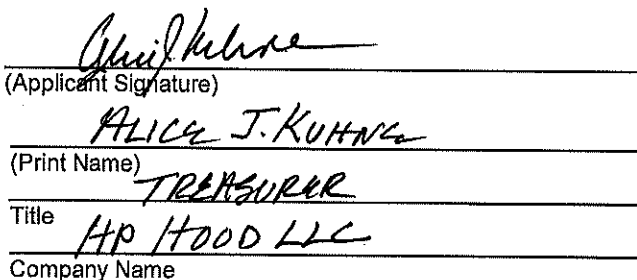 Alice J. Kuhne
(Applicant Signature)
ALICE J. KUHNE
(Print Name)
TREASURER
Title
HP HOOD LLC
Company Name